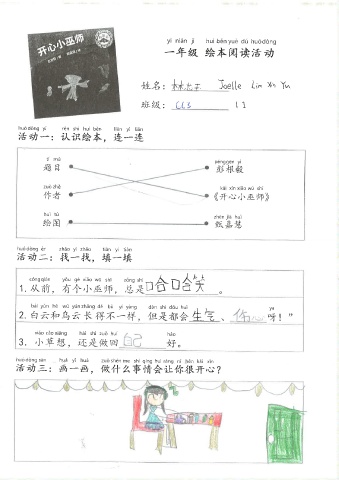 开心小巫师
yì nián jí huì běn yuè dú huó dòng
一年级 绘本阅读活动
姓名: Joelle Lim Xin Yu
班级:
huó dòng yī rèn shi huì běn lián yì lián
活动一:认识绘本,连一连
tí mù
题目
彭根毅
zuò zhě
作者
kāi xīn xiǎo wū shī
《开心小巫师》
huì tú
绘图
甄嘉慧
huó dòng èr zhǎo yì zhǎo tián yì tián
活动二:找一找,填一填
cóng qián yǒu gè xiǎo wū shī zǒng shì
1. 从前,有个小巫师,总是哈哈笑。
bái yún hé wū yún zhǎng dé bù yí yàng dàn shì dōu huì
2. 白云和乌云长得不一样,但是都会生气、伤心呀!”
xiǎo cǎo xiǎng hái shì zuò huí hǎo
3. 小草想,还是做回自己好。
huó dòng sān huà yí huà zuò shén me shì qing huì ràng nǐ hěn kāi xīn
活动三:画一画,做什么事情会让你很开心?